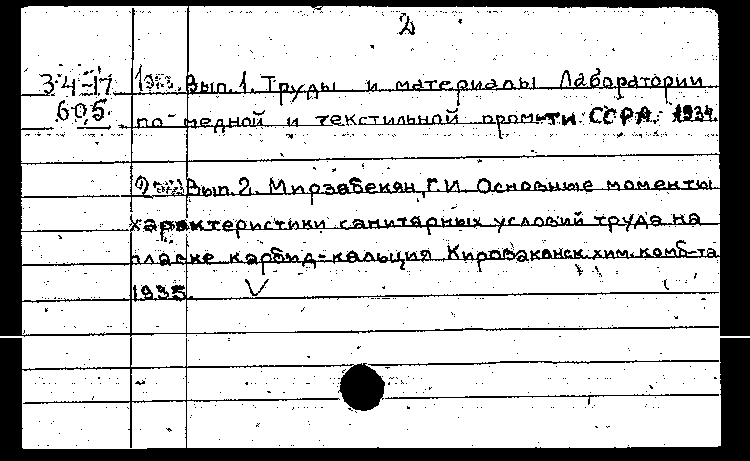 2
34-17 Вып. 1. Труды и материалы Лаборатории
605 по медной и текстильной пром-ти ССРА. 1934.
Вып. 2. Мирзабекян, Г.И. Основные моменты
характеристики санитарных условий труда на
плавке карбид-кальция Кироваканск. хим. комб-та
1935.